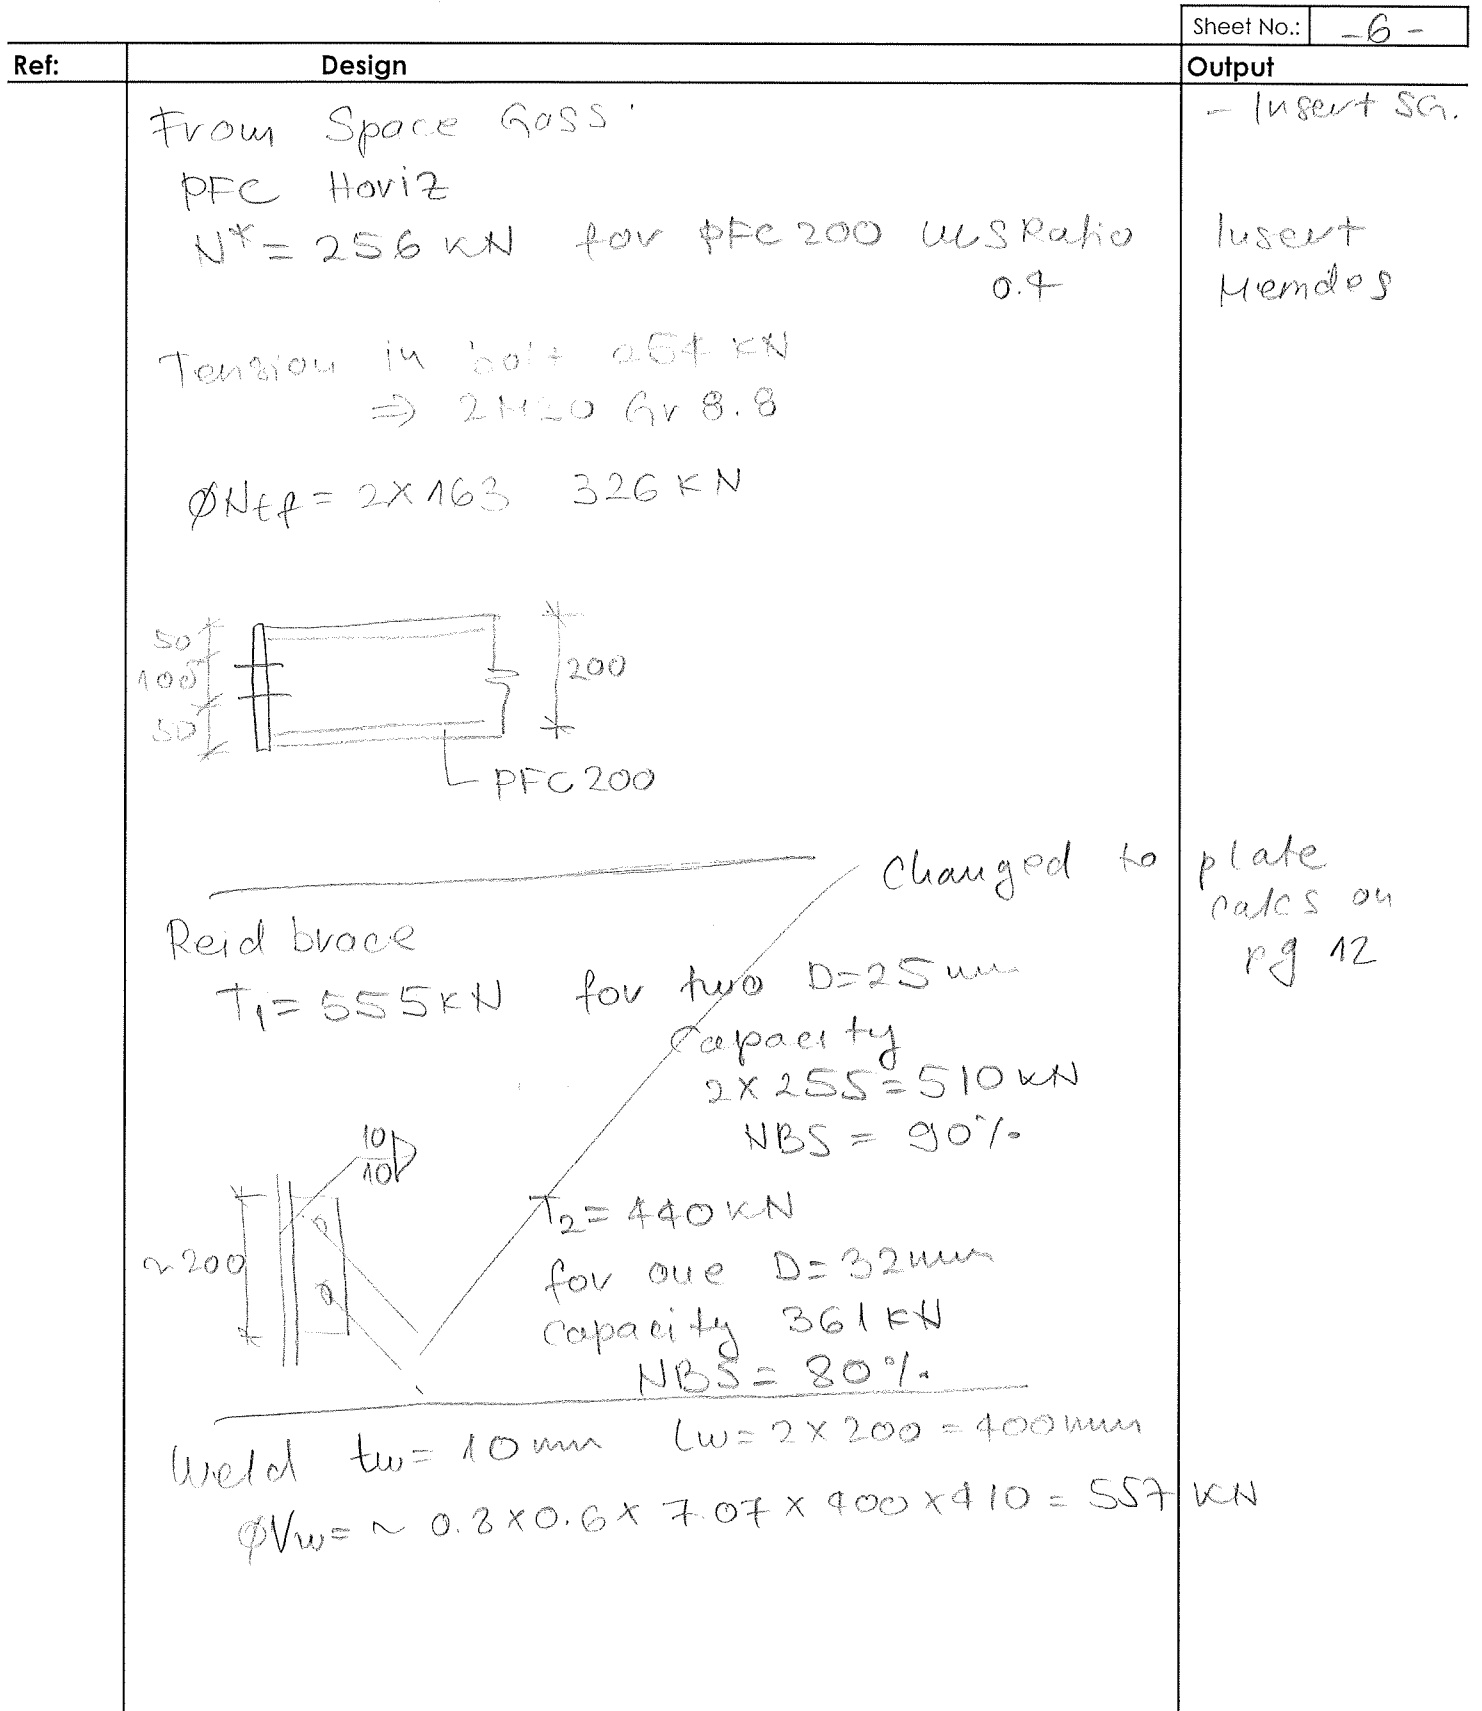 Sheet No.: -6-
Ref: Design Output
From Space Gass - Insert SG.
PFC Horiz
N* = 256 KN for PFC 200 ULS Ratio Insert
0.4 Memdes
Tension in bolt 254 KN
⇒ 2M20 Gr 8.8
ØNtf = 2×163 326 KN
50
100
50
200
PFC 200
Changed to plate
calcs on
pg 12
Reid brace
T1 = 555 KN for two D=25 mm
Capacity
2×255 = 510 KN
NBS = 90%
10
10
~200
T2 = 440 KN
for one D=32mm
capacity 361 KN
NBS = 80%
Weld tw = 10 mm Lw = 2×200 = 400mm
ØVw = ~ 0.8×0.6×7.07×400×410 = 557 KN